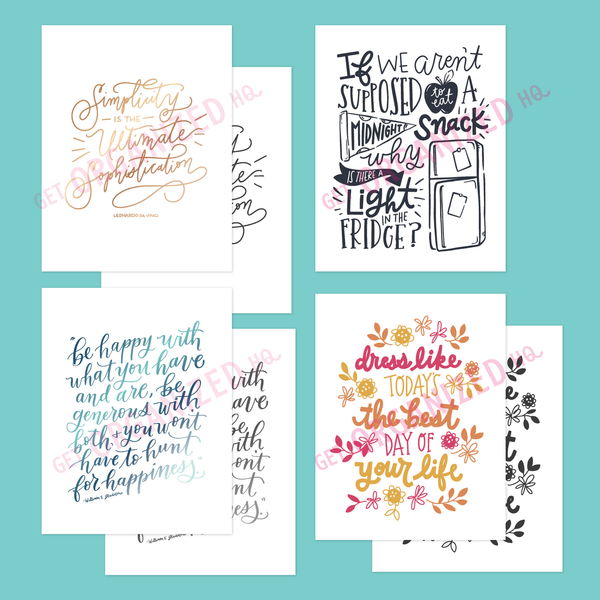 Simplicity
IS THE
Ultimate
Sophistication
LEONARDO DA VINCI
GET ORGANIZED HQ
If WE aren't
SUPPOSED to eat A
MIDNIGHT Snack
why
IS THERE A
Light
IN THE
FRIDGE?
GET ORGANIZED HQ
"be happy with
what you have
and are, be
generous with
both & you won't
have to hunt
for happiness."
GET ORGANIZED HQ
with
have
be
with
won't
hunt
ness."
dress like
TODAYS
the best
DAY OF
your life
GET ORGANIZED HQ